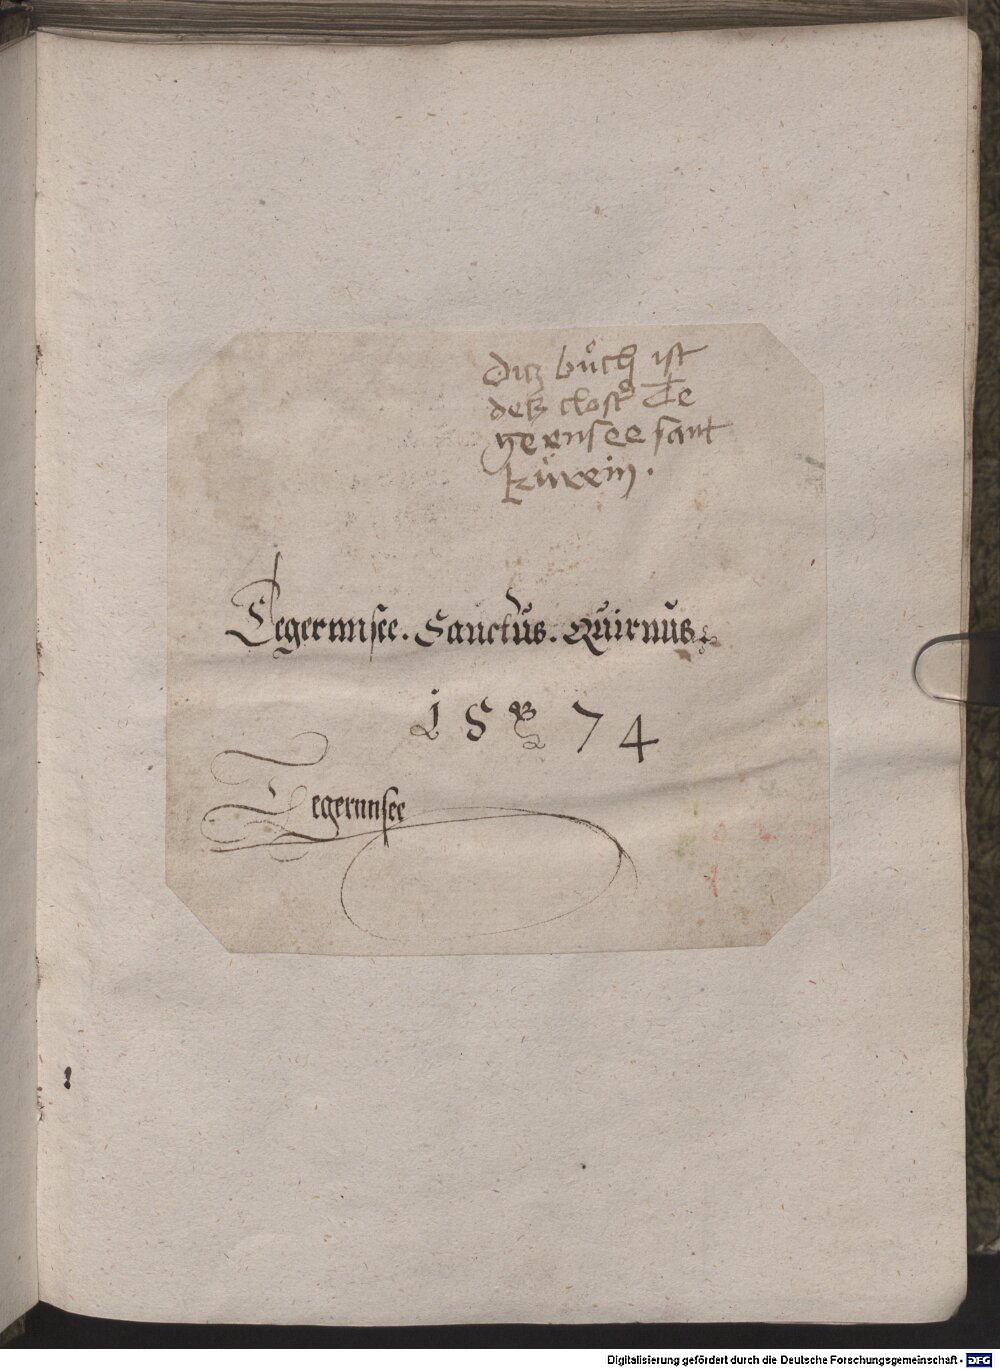 ditz bůch ist
detz clost᷒ Te
gernsee sant
kürein .
Tegernnsee . Sanctus . Quirnus .
15 74
Tegernnsee
Digitalisierung gefördert durch die Deutsche Forschungsgemeinschaft - DFG